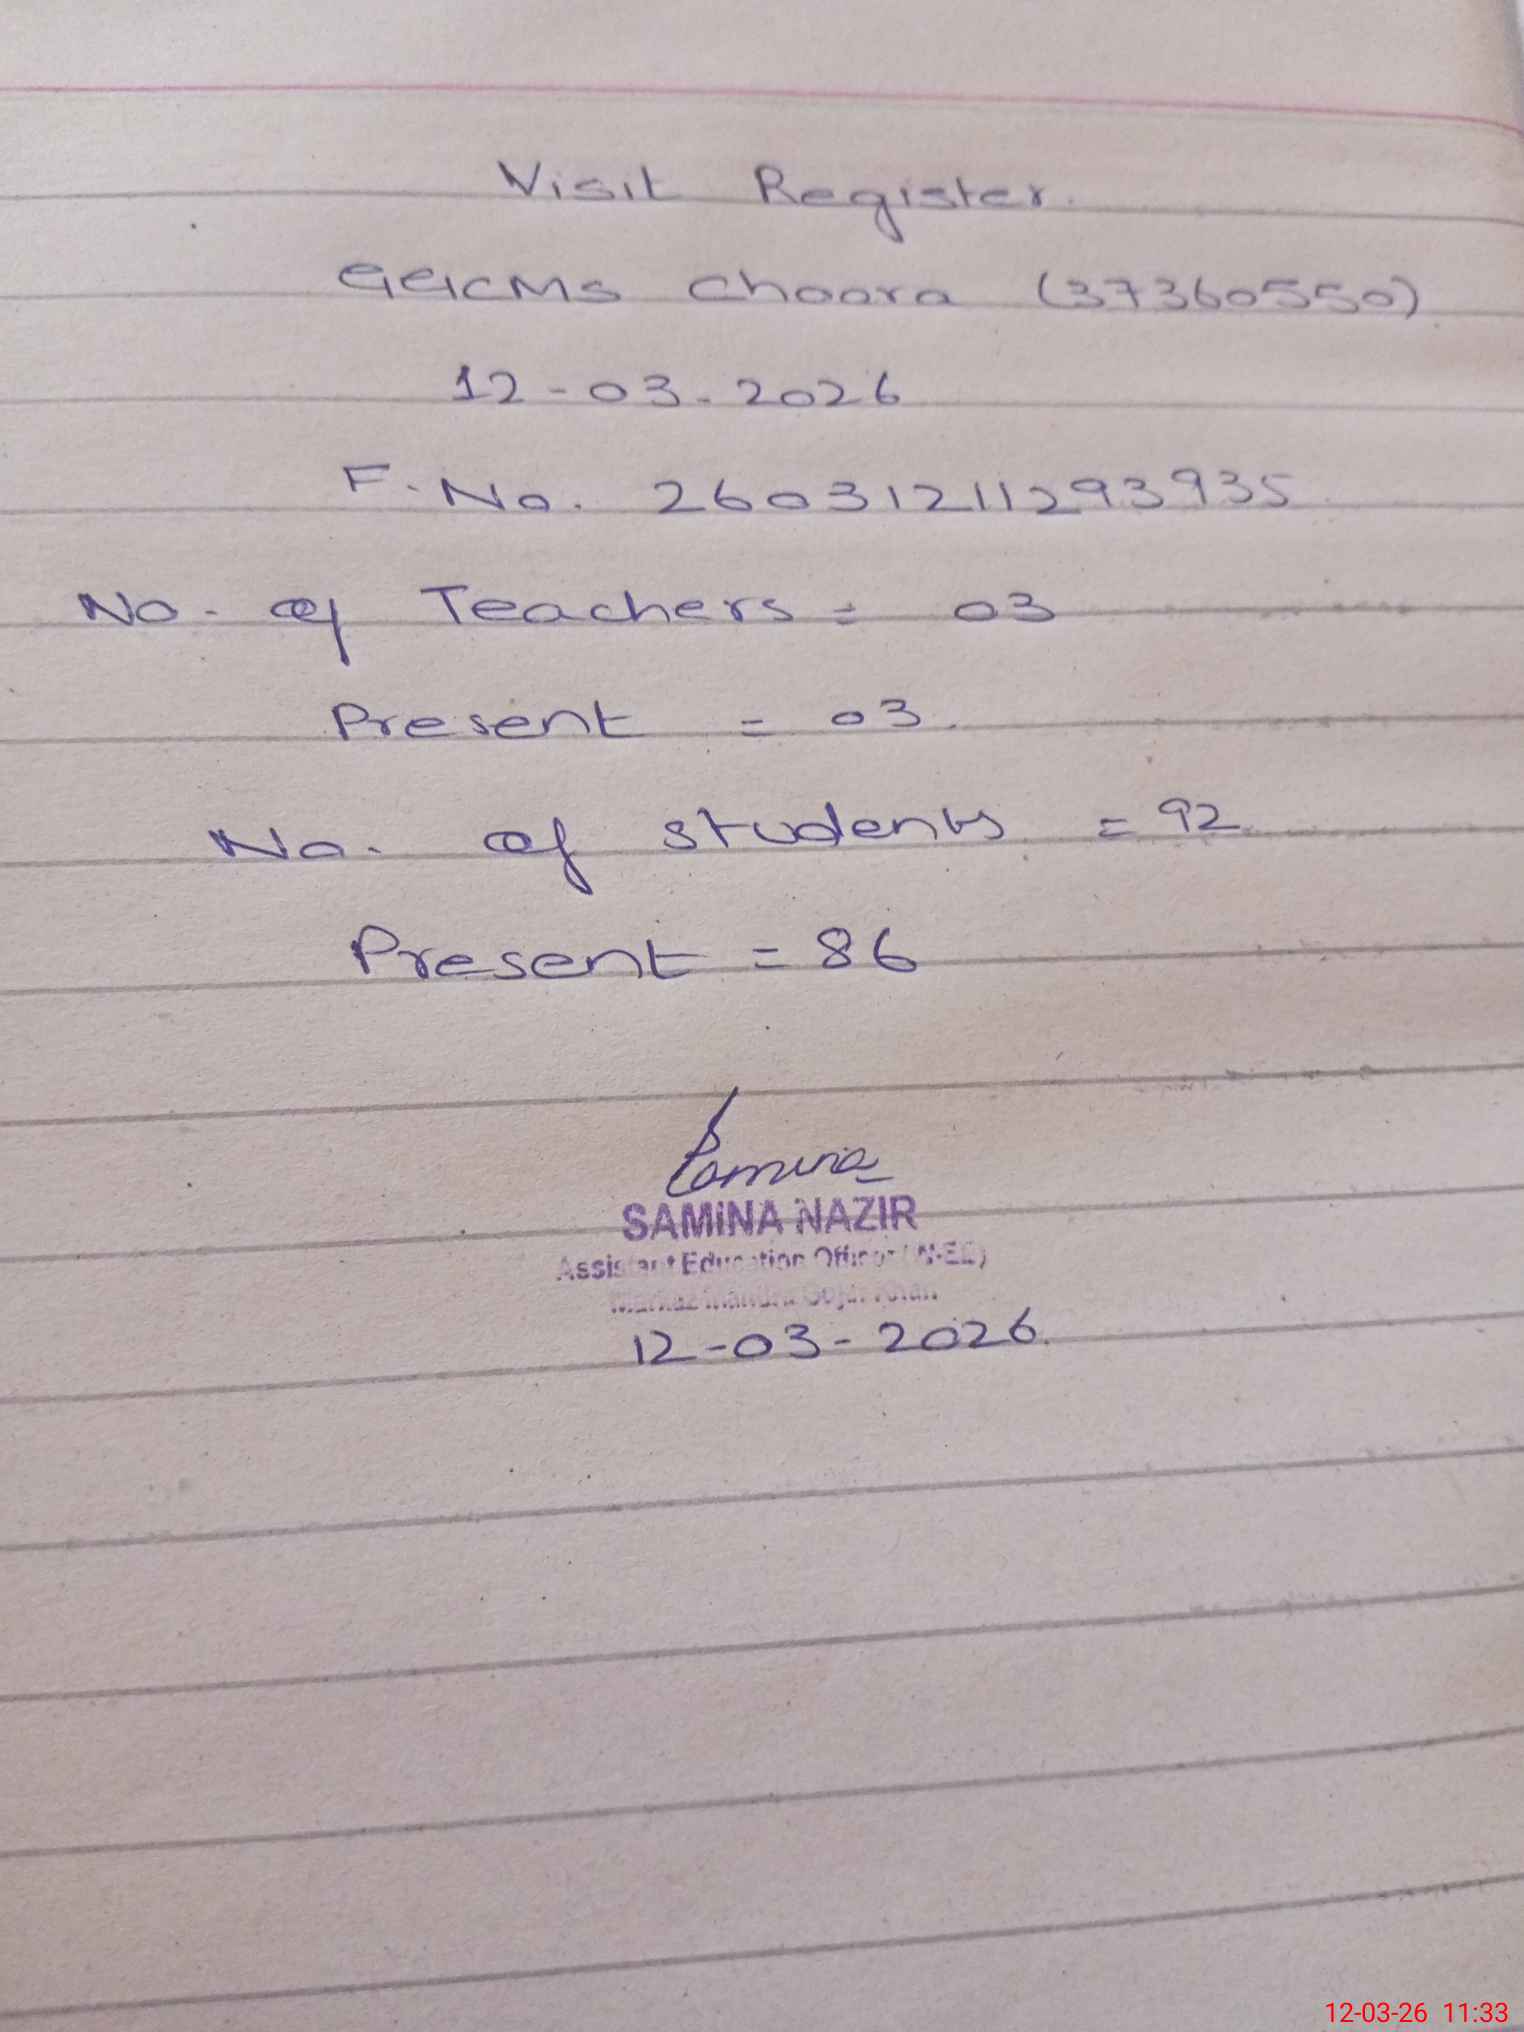 Visit Register.
GGCMS Choora (37360550)
12-03-2026
F. No. 26031211293935
No. of Teachers = 03
Present = 03.
No. of students = 92
Present = 86
Samina
SAMINA NAZIR
Assistant Education Officer (W-EE)
Markaz
12-03-2026.
12-03-26 11:33